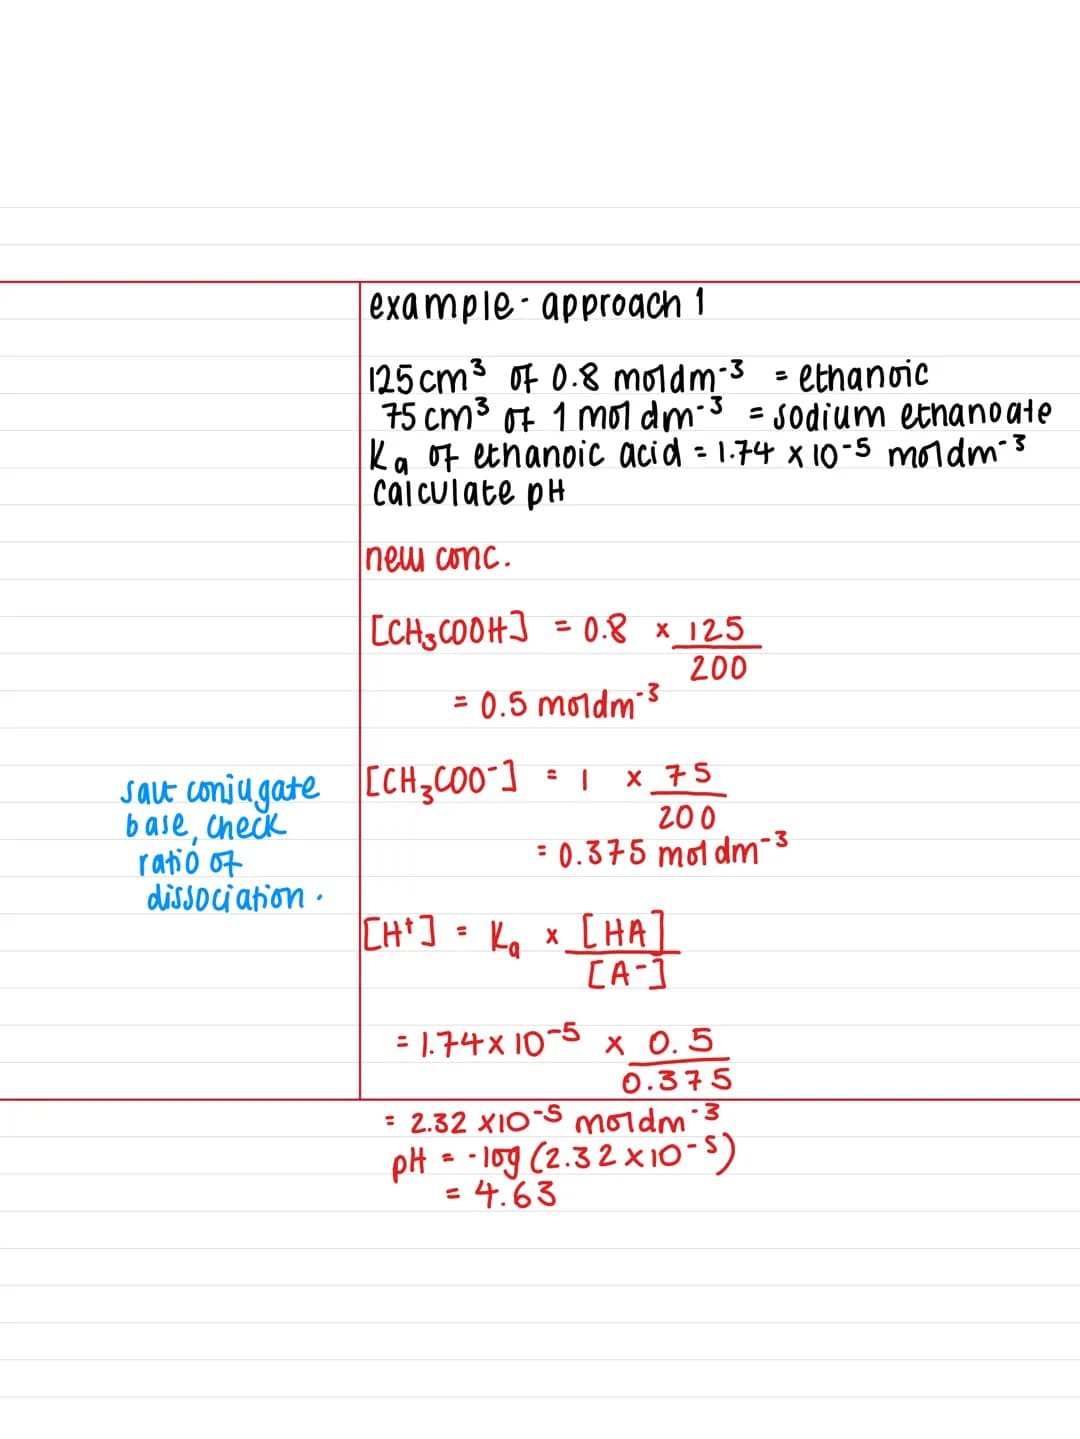 example - approach 1
125cm³ of 0.8 moldm⁻³ = ethanoic
75cm³ of 1 mol dm⁻³ = sodium ethanoate
Ka of ethanoic acid = 1.74 x 10⁻⁵ moldm⁻³
calculate pH
new conc.
[CH₃COOH] = 0.8 x 125
200
= 0.5 moldm⁻³
salt conjugate
base, check
ratio of
dissociation.
[CH₃COO⁻] = 1 x 75
200
= 0.375 mol dm⁻³
[H⁺] = Ka x [HA]
[A⁻]
= 1.74 x 10⁻⁵ x 0.5
0.375
= 2.32 x10⁻⁵ moldm⁻³
pH = -log (2.32 x10⁻⁵)
= 4.63